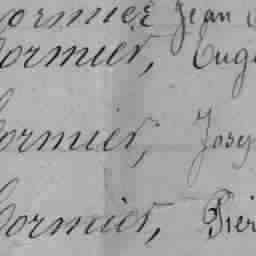 Cormier Jean
Cormier, Eug
Cormier, Josep
Cormier, Pier